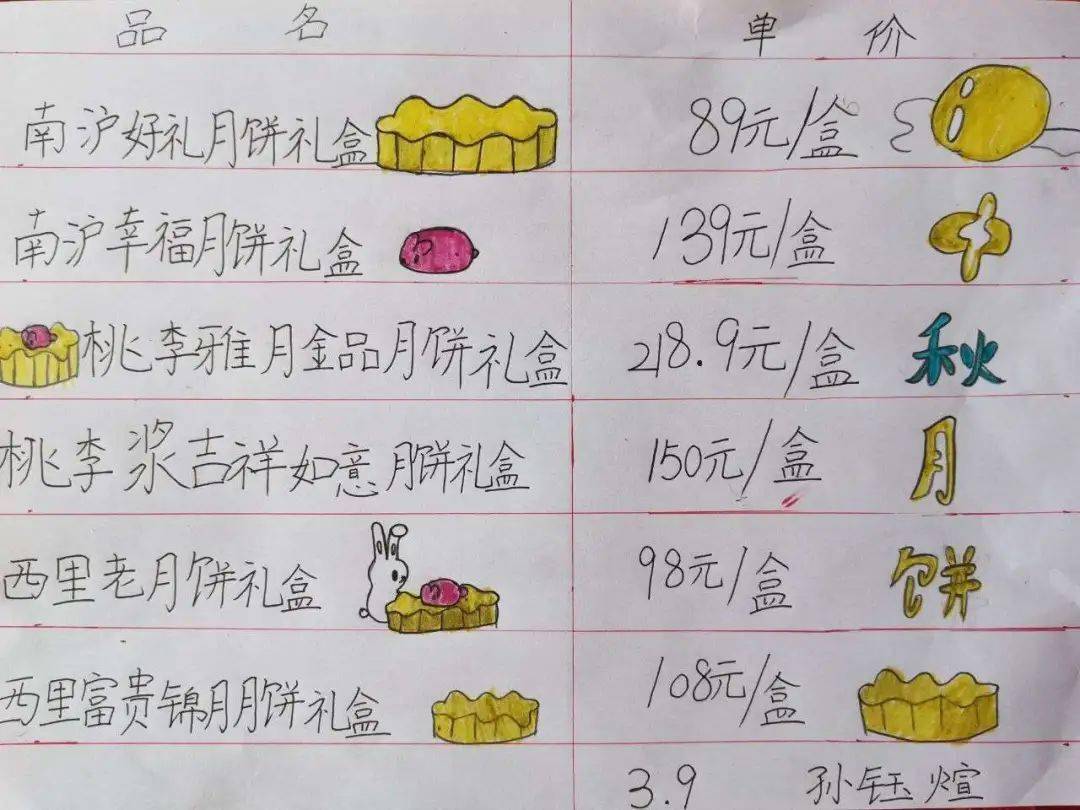 品 名 单 价
南沪好礼月饼礼盒 89元/盒
南沪幸福月饼礼盒 139元/盒 中
桃李雅月金品月饼礼盒 218.9元/盒 秋
桃李浆吉祥如意月饼礼盒 150元/盒 月
西里老月饼礼盒 98元/盒 饼
西里富贵锦月月饼礼盒 108元/盒
3.9 孙钰煊